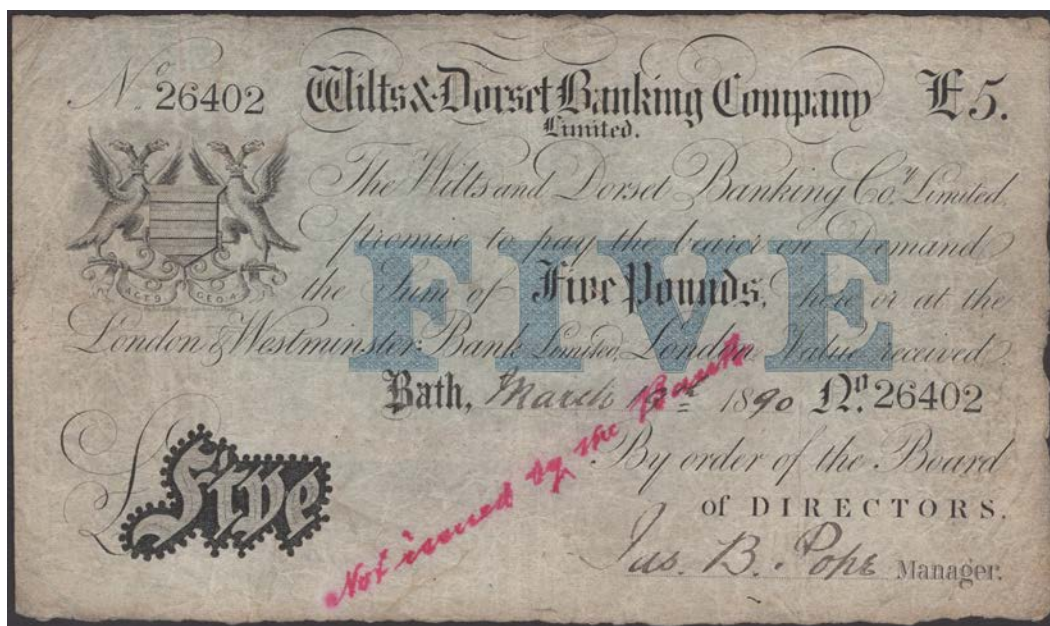 No 26402 Wilts & Dorset Banking Company £5.
Limited.
The Wilts and Dorset Banking Coy. Limited,
promise to pay the bearer on Demand
FIVE
the Sum of Five Pounds, here or at the
ACT 9 GEO. 4
London & Westminster Bank Limited, London, Value received.
Bath, March 1890 No. 26402
Not issued by the Bank
By order of the Board
£Five
of DIRECTORS.
Jas. B. Pope Manager.